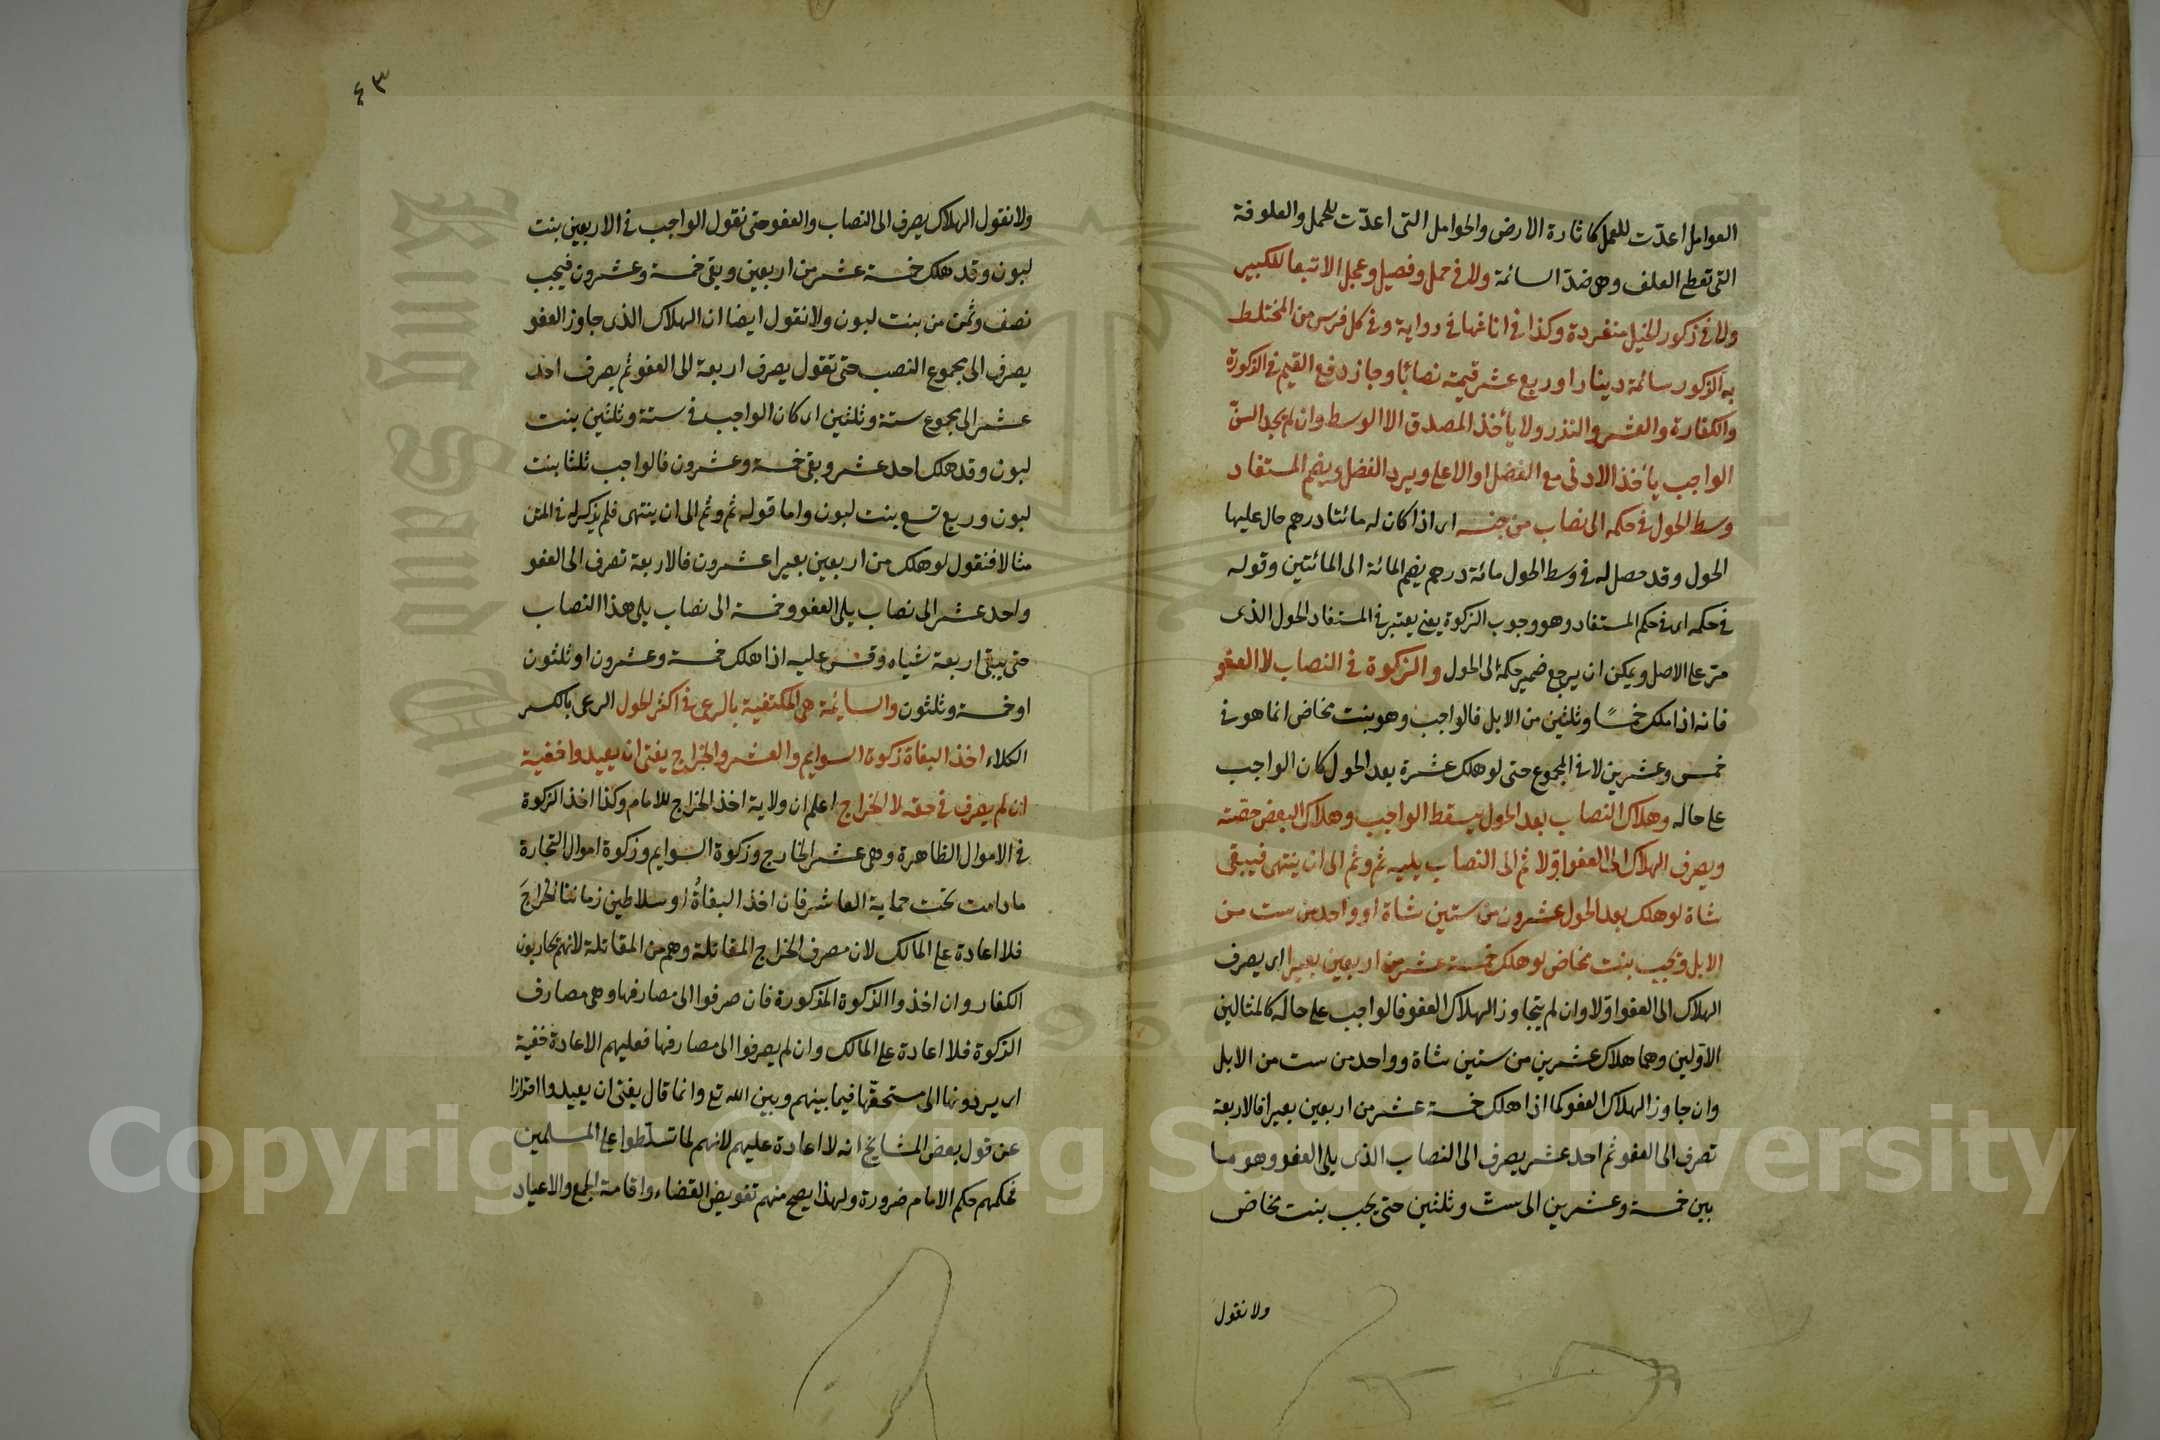 العوامل اعدّت للعمل كاثارة الارض والحوامل التى اعدّت للحمل والعلوفة
التى تعطى العلف وهى ضد السائمة ولا فى حمل وفصيل وعجل الا تبعا للكبير
ولا فى ذكور الخيل منفردة وكذا فى اناثها فى رواية وفى كل فرس من المختلط
به الذكور سائمة دينارا وربع عشر قيمته نصابًا وجاز دفع القيم فى الزكوة
والكفارة والعشر والنذر ولا يأخذ المصدق الا الوسط وان لم يجد السنّ
الواجب يأخذ الادنى مع الفضل او الاعلى ويرد الفضل ويضم المستفاد
وسط الحول فى حكمه الى نصاب من جنسه اى اذا كان له مائتا درهم حال عليها
الحول وقد حصل له فى وسط الحول مائة درهم يضم المائة الى المائتين وقوله
فى حكمه اى فى حكم المستفاد وهو وجوب الزكوة يعنى يعتبر فى المستفاد الحول الذى
مرّ على الاصل ويمكن ان يرجع ضمير حكمه الى الحول والزكوة فى النصاب لا العفو
فانه اذا ملك خمسًا وثلثين من الابل فالواجب وهو بنت مخاض انما هو فى
خمس وعشرين لا فى المجموع حتى لو هلك عشرة بعد الحول كان الواجب
على حاله وهلاك النصاب بعد الحول يسقط الواجب وهلاك البعض حصته
ويصرف الهلاك الى العفو اوّلا ثم الى النصاب يليه ثم وثم الى ان ينتهى فيبقى
شاة لو هلك بعد الحول عشرون من ستين شاة او واحد من ست من
الابل وتجب بنت مخاض لو هلك خمسة عشر من اربعين بعيرا اى يصرف
الهلاك الى العفو اوّلا وان لم يتجاوز الهلاك العفو فالواجب على حاله كالمثالين
الاوّلين وهما هلاك عشرين من ستين شاة وواحد من ست من الابل
وان جاوز الهلاك العفو كما اذا هلك خمسة عشر من اربعين بعيرا فالاربعة
تصرف الى العفو ثم احد عشر يصرف الى النصاب الذى يلى العفو وهو ما
بين خمسة وعشرين الى ستّ وثلثين حتى يجب بنت مخاض
ولا نقول
٤٣
ولا نقول الهلاك يصرف الى النصاب والعفو حتى نقول الواجب فى الاربعين بنت
لبون وقد هلك خمسة عشر من اربعين وبقى خمسة وعشرون فيجب
نصف وثمن من بنت لبون ولا نقول ايضا ان الهلاك الذى جاوز العفو
يصرف الى مجموع النصب حتى تقول يصرف اربعة الى العفو ثم يصرف احد
عشر الى مجموع ستة وثلثين اى كان الواجب فى ستة وثلثين بنت
لبون وقد هلك احد عشر وبقى خمسة وعشرون فالواجب ثلثا بنت
لبون وربع تسع بنت لبون واما قوله ثم وثم الى ان ينتهى فلم يذكر له فى المتن
مثالا فنقول لو هلك من اربعين بعيرا عشرون فالاربعة تصرف الى العفو
واحد عشر الى نصاب يلى العفو وخمسة الى نصاب يلى هذا النصاب
حتى يبقى اربعة شياه وقس عليه اذا هلك خمسة وعشرون او ثلثون
او خمسة وثلثون والسائمة هى المكتفية بالرعى فى اكثر الحول الرعى بالكسر
الكلاء اخذ البغاة زكوة السوايم والعشر والخراج يفتى ان يعيدوا خفية
ان لم يصرف فى حقه لا الخراج اعلم ان ولاية اخذ الخراج للامام وكذا اخذ الزكوة
فى الاموال الظاهرة وهى عشر الخارج وزكوة السوايم وزكوة اموال التجارة
ما دامت تحت حماية العاشر فان اخذ البغاةُ او سلاطين زماننا الخراجَ
فلا اعادة على المالك لان مصرف الخراج المقاتلة وهم من المقاتلة لانهم يحاربون
الكفار وان اخذوا الزكوة المذكورة فان صرفوا الى مصارفها وهى مصارف
الزكوة فلا اعادة على المالك وان لم يصرفوا الى مصارفها فعليهم الاعادة خفية
اى يردونها الى مستحقّها فيما بينهم وبين الله تع وانما قال يفتى ان يعيدوا احترازا
عن قول بعض المشايخ انه لا اعادة عليهم لانهم لما تسلّطوا على المسلمين
فحكمهم حكم الامام ضرورة ولهذا يصح منهم تفويض القضاء واقامة الجمع والاعياد
Copyright © King Saud University